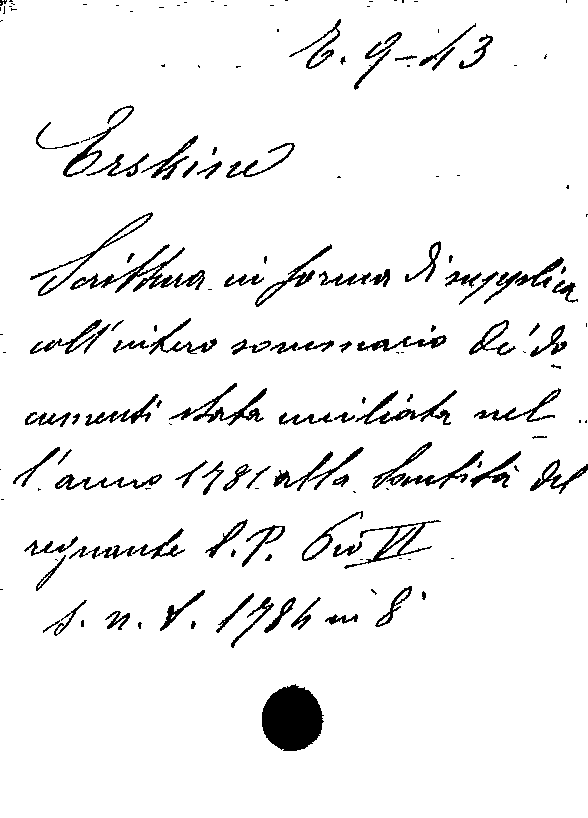 E. 9-43
Erskine
Scrittura in forma di supplica
coll'intero sommario de' do
cumenti stata umiliata nel
l'anno 1781 alla Santità del
regnante S. P. Pio VI
s. n. t. 1784 in 8°